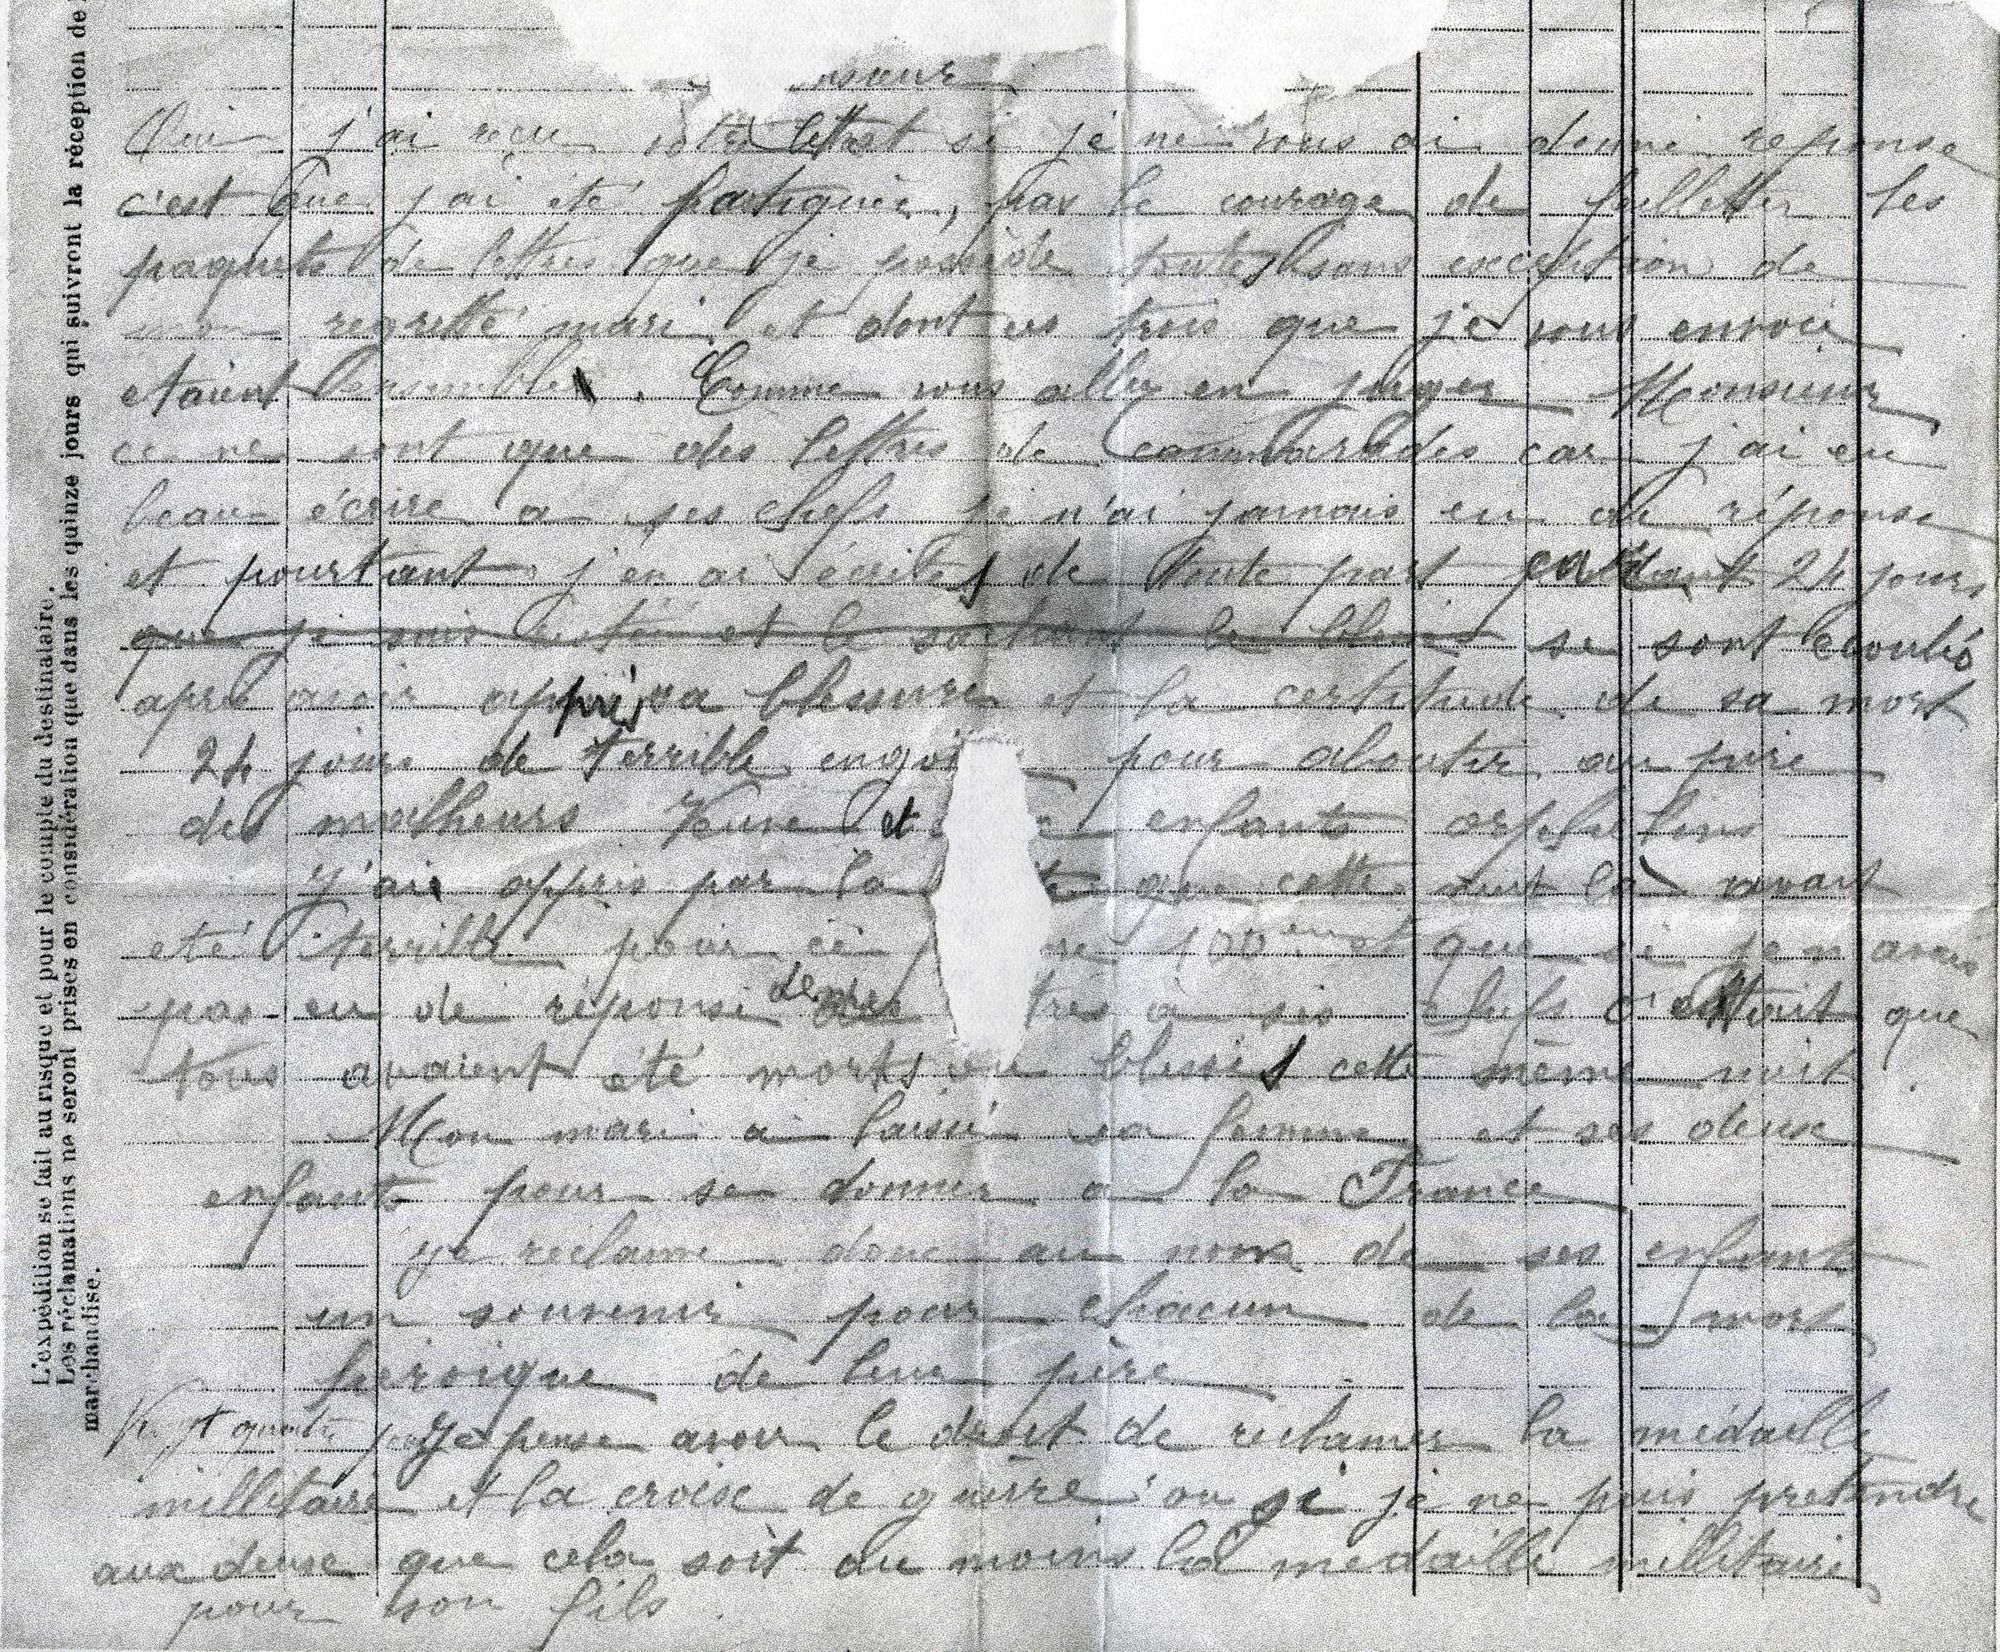 L'expédition se fait au risque et pour le compte du destinataire.
Les réclamations ne seront prises en considération que dans les quinze jours qui suivront la réception de
marchandise.
nsieur
Oui j'ai reçu votre lettre et si je ne vous ai donné reponse
c'est que j'ai été fatiguée, pas le courage de feilleter les
paquets de lettres que je possède toutes sans exception de
mon regretté mari et dont ces trois que je vous envoie
etaient ensembles. Comme vous allez en juger Monsieur
ce ne sont que des lettres de cammarades car j'ai eu
beau écrire a ses chefs je n'ai jamais eu de réponse
et pourtant j'en ai écrites de toute part pendant 24 jours
que je suis restée et le sachant se sont écoulés
apres avoir appris sa blessure et la certitude de sa mort
24 jours de terrible engoi pour aboutir au pire
des malheurs Veuve et enfants orphelins
j'ai appris par la ite que cette nuit là avait
eté terrible pour ce re 100eme et que si je n avais
pas eu de réponse de mes tres a ses chefs c'ettait que
tous avaient été morts ou blessés cette même nuit.
Mon mari a laissé sa femme et ses deux
enfants pour se donner a la France
je reclame donc au nom de ses enfants
un souvenir pour chacun de la mort
heroique de leur père
Vingt quatre jours
je pense avoir le droit de reclamer la médaille
millitaire et la croix de guèrre ou si je ne puis pretendre
aux deux que cela soit au moins la médaille millitaire
pour son fils.